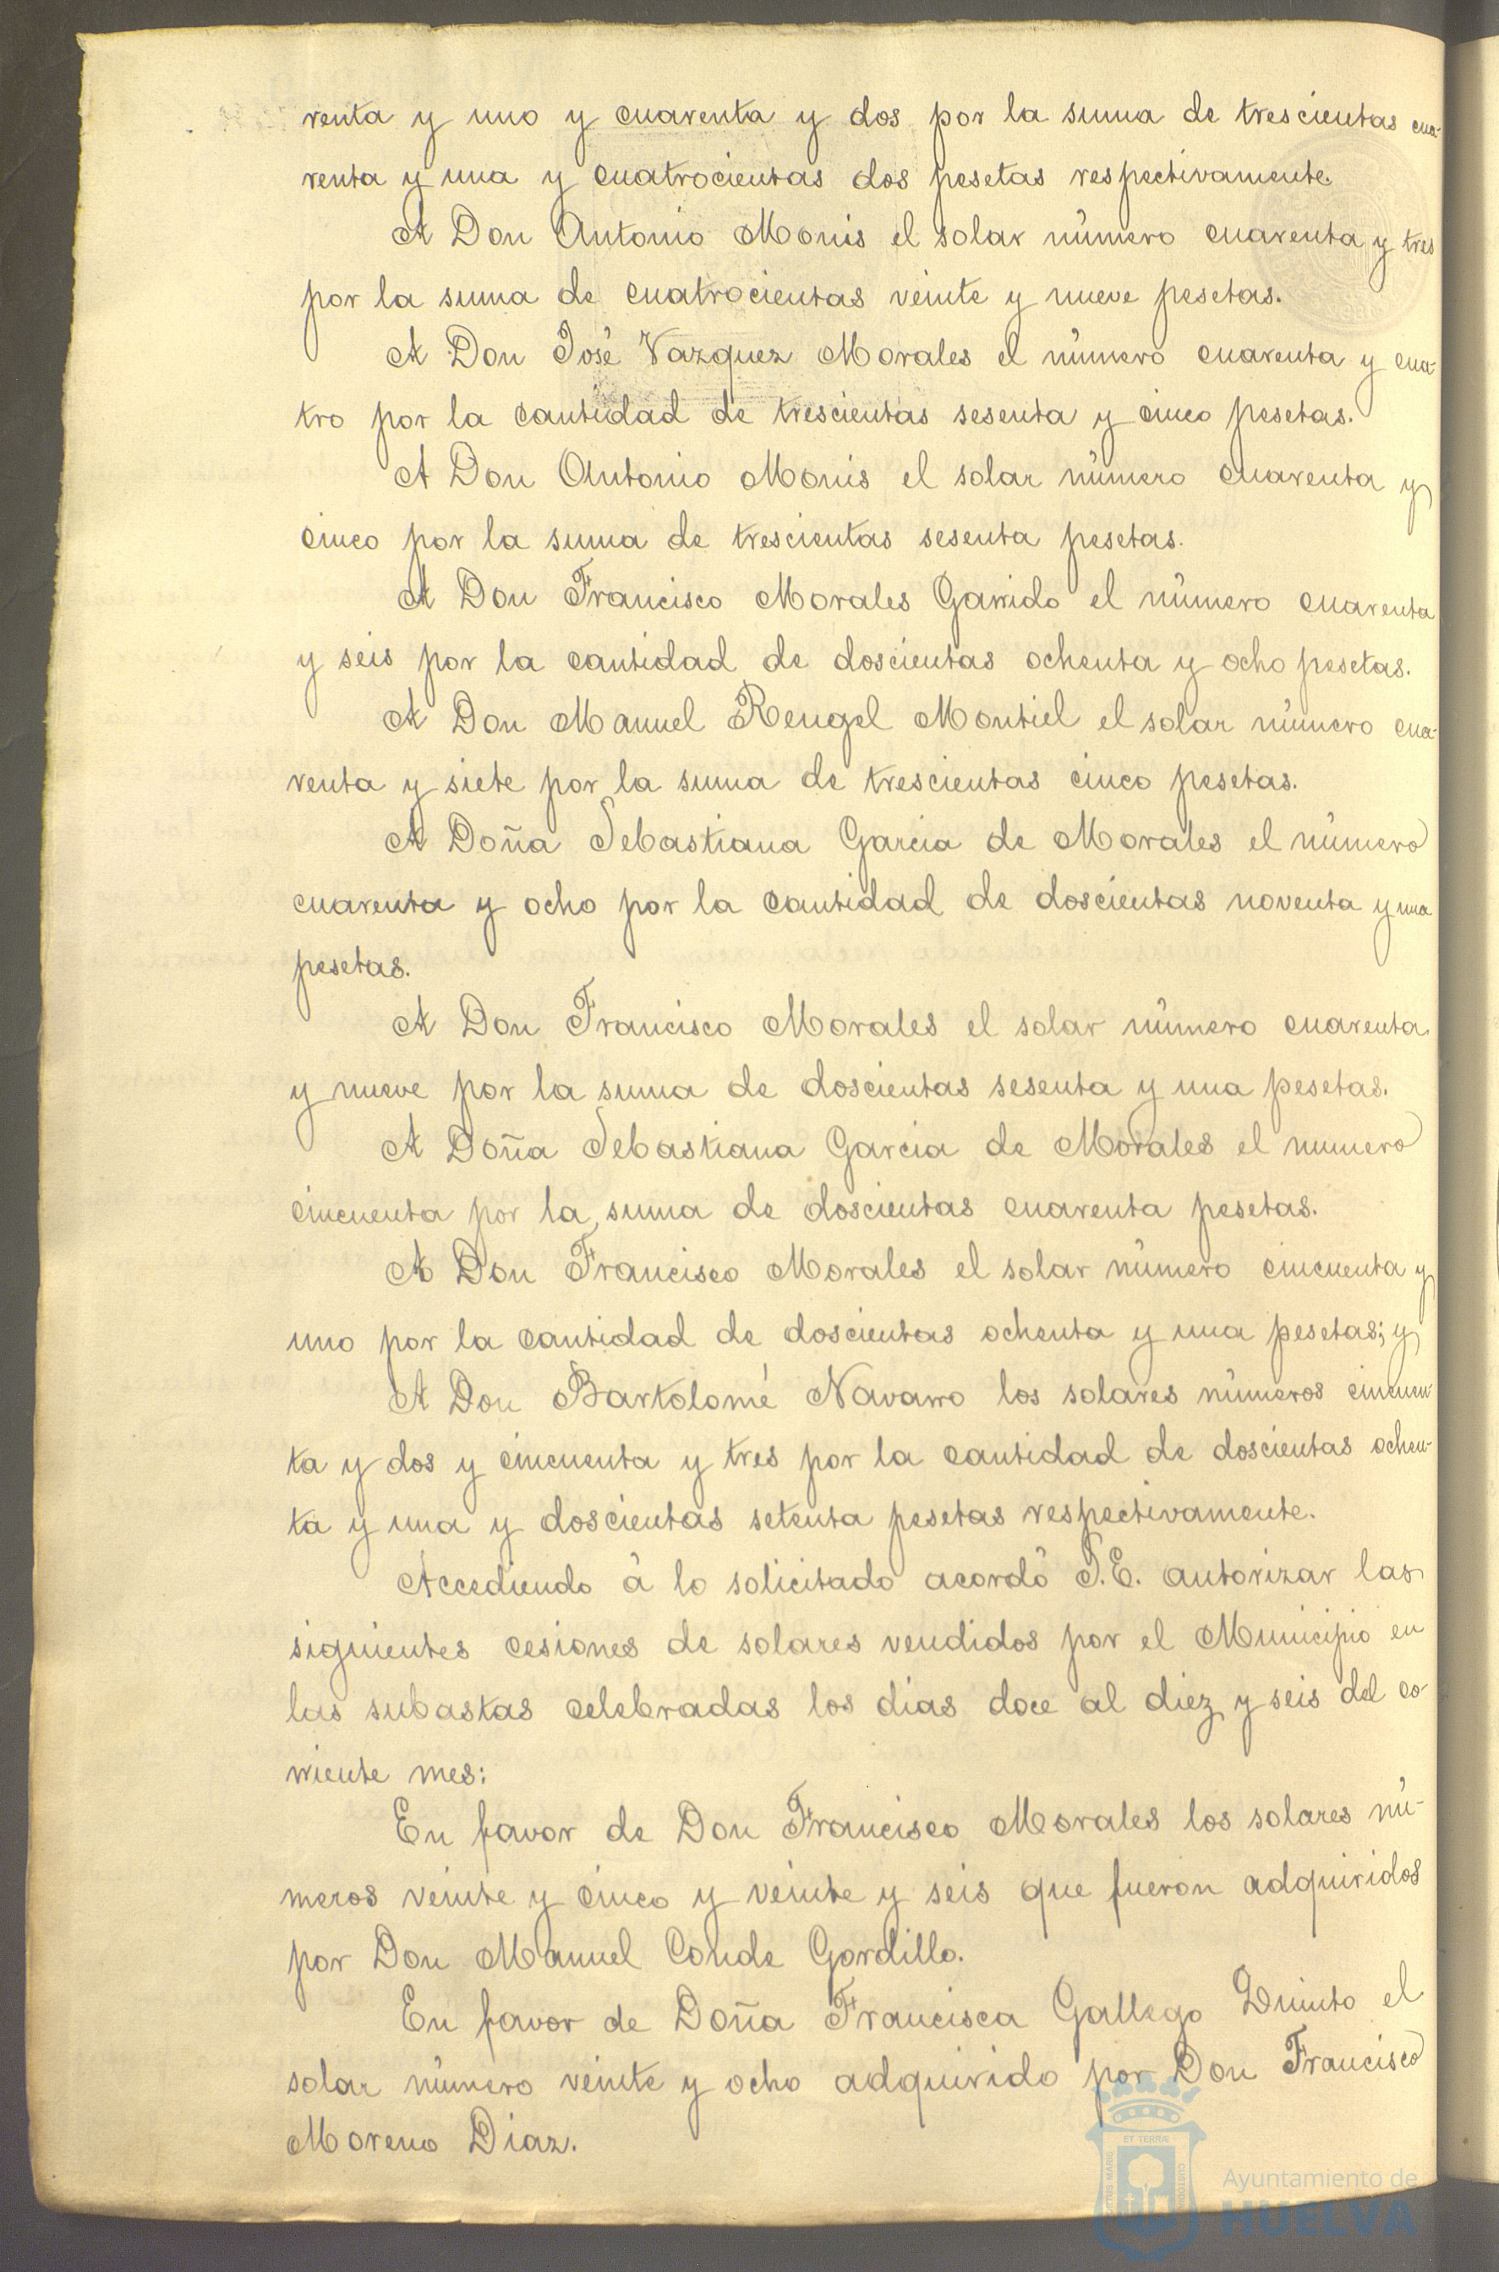 renta y uno y cuarenta y dos por la suma de trescientas cua-
renta y una y cuatrocientas dos pesetas respectivamente.
A Don Antonio Monis el solar número cuarenta y tres
por la suma de cuatrocientas veinte y nueve pesetas.
A Don José Vazquez Morales el número cuarenta y cua-
tro por la cantidad de trescientas sesenta y cinco pesetas.
A Don Antonio Monis el solar número cuarenta y
cinco por la suma de trescientas sesenta pesetas.
A Don Francisco Morales Garrido el número cuarenta
y seis por la cantidad de doscientas ochenta y ocho pesetas.
A Don Manuel Rengel Montiel el solar número cua-
renta y siete por la suma de trescientas cinco pesetas.
A Doña Sebastiana Garcia de Morales el número
cuarenta y ocho por la cantidad de doscientas noventa y una
pesetas.
A Don Francisco Morales el solar número cuarenta
y nueve por la suma de doscientas sesenta y una pesetas.
A Doña Sebastiana Garcia de Morales el numero
cincuenta por la suma de doscientas cuarenta pesetas.
A Don Francisco Morales el solar número cincuenta y
uno por la cantidad de doscientas ochenta y una pesetas; y
A Don Bartolomé Navarro los solares números cincuen-
ta y dos y cincuenta y tres por la cantidad de doscientas ochen-
ta y una y doscientas setenta pesetas respectivamente.
Accediendo á lo solicitado acordó S.E. autorizar las
siguientes cesiones de solares vendidos por el Municipio en
las subastas celebradas los dias doce al diez y seis del co-
rriente mes:
En favor de Don Francisco Morales los solares nú-
meros veinte y cinco y veinte y seis que fueron adquiridos
por Don Manuel Conde Gordillo.
En favor de Doña Francisca Gallego Quinto el
solar número veinte y ocho adquirido por Don Francisco
Moreno Diaz.
ET TERRÆ
PORTUS MARIS
CUSTODIA
Ayuntamiento de
HUELVA